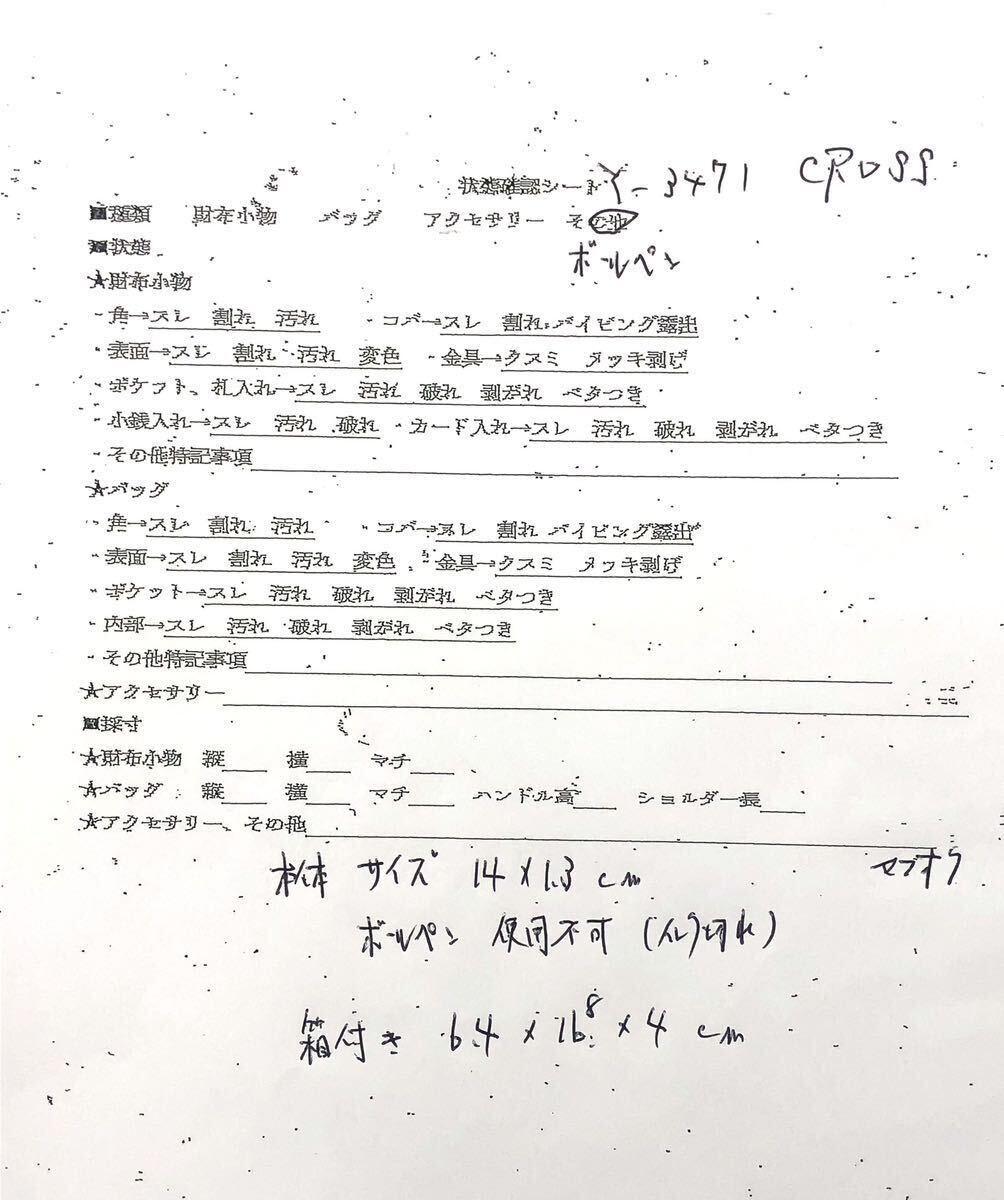 状態確認シート Y-3471 CROSS
■種類 財布小物 バッグ アクセサリー その他
ボールペン
■状態
★財布小物
・角→スレ 割れ 汚れ ・コバ→スレ 割れ パイピング露出
・表面→スレ 割れ 汚れ 変色 ・金具→クスミ メッキ剥げ
・ポケット、札入れ→スレ 汚れ 破れ 剥がれ ベタつき
・小銭入れ→スレ 汚れ 破れ ・カード入れ→スレ 汚れ 破れ 剥がれ ベタつき
・その他特記事項
★バッグ
・角→スレ 割れ 汚れ ・コバ→スレ 割れ パイピング露出
・表面→スレ 割れ 汚れ 変色 ・金具→クスミ メッキ剥げ
・ポケット→スレ 汚れ 破れ 剥がれ ベタつき
・内部→スレ 汚れ 破れ 剥がれ ベタつき
・その他特記事項
★アクセサリー
■採寸
★財布小物 縦 横 マチ
★バッグ 縦 横 マチ ハンドル高 ショルダー長
★アクセサリー、その他
本体 サイズ 14×1.3 cm
ボールペン 使用不可 (インク切れ)
箱付き 6.4×16.8×4 cm